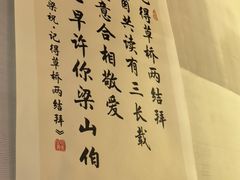 记得草桥两结拜
同共读有三长载
意合相敬爱
早许你梁山伯
梁祝·记得草桥两结拜》